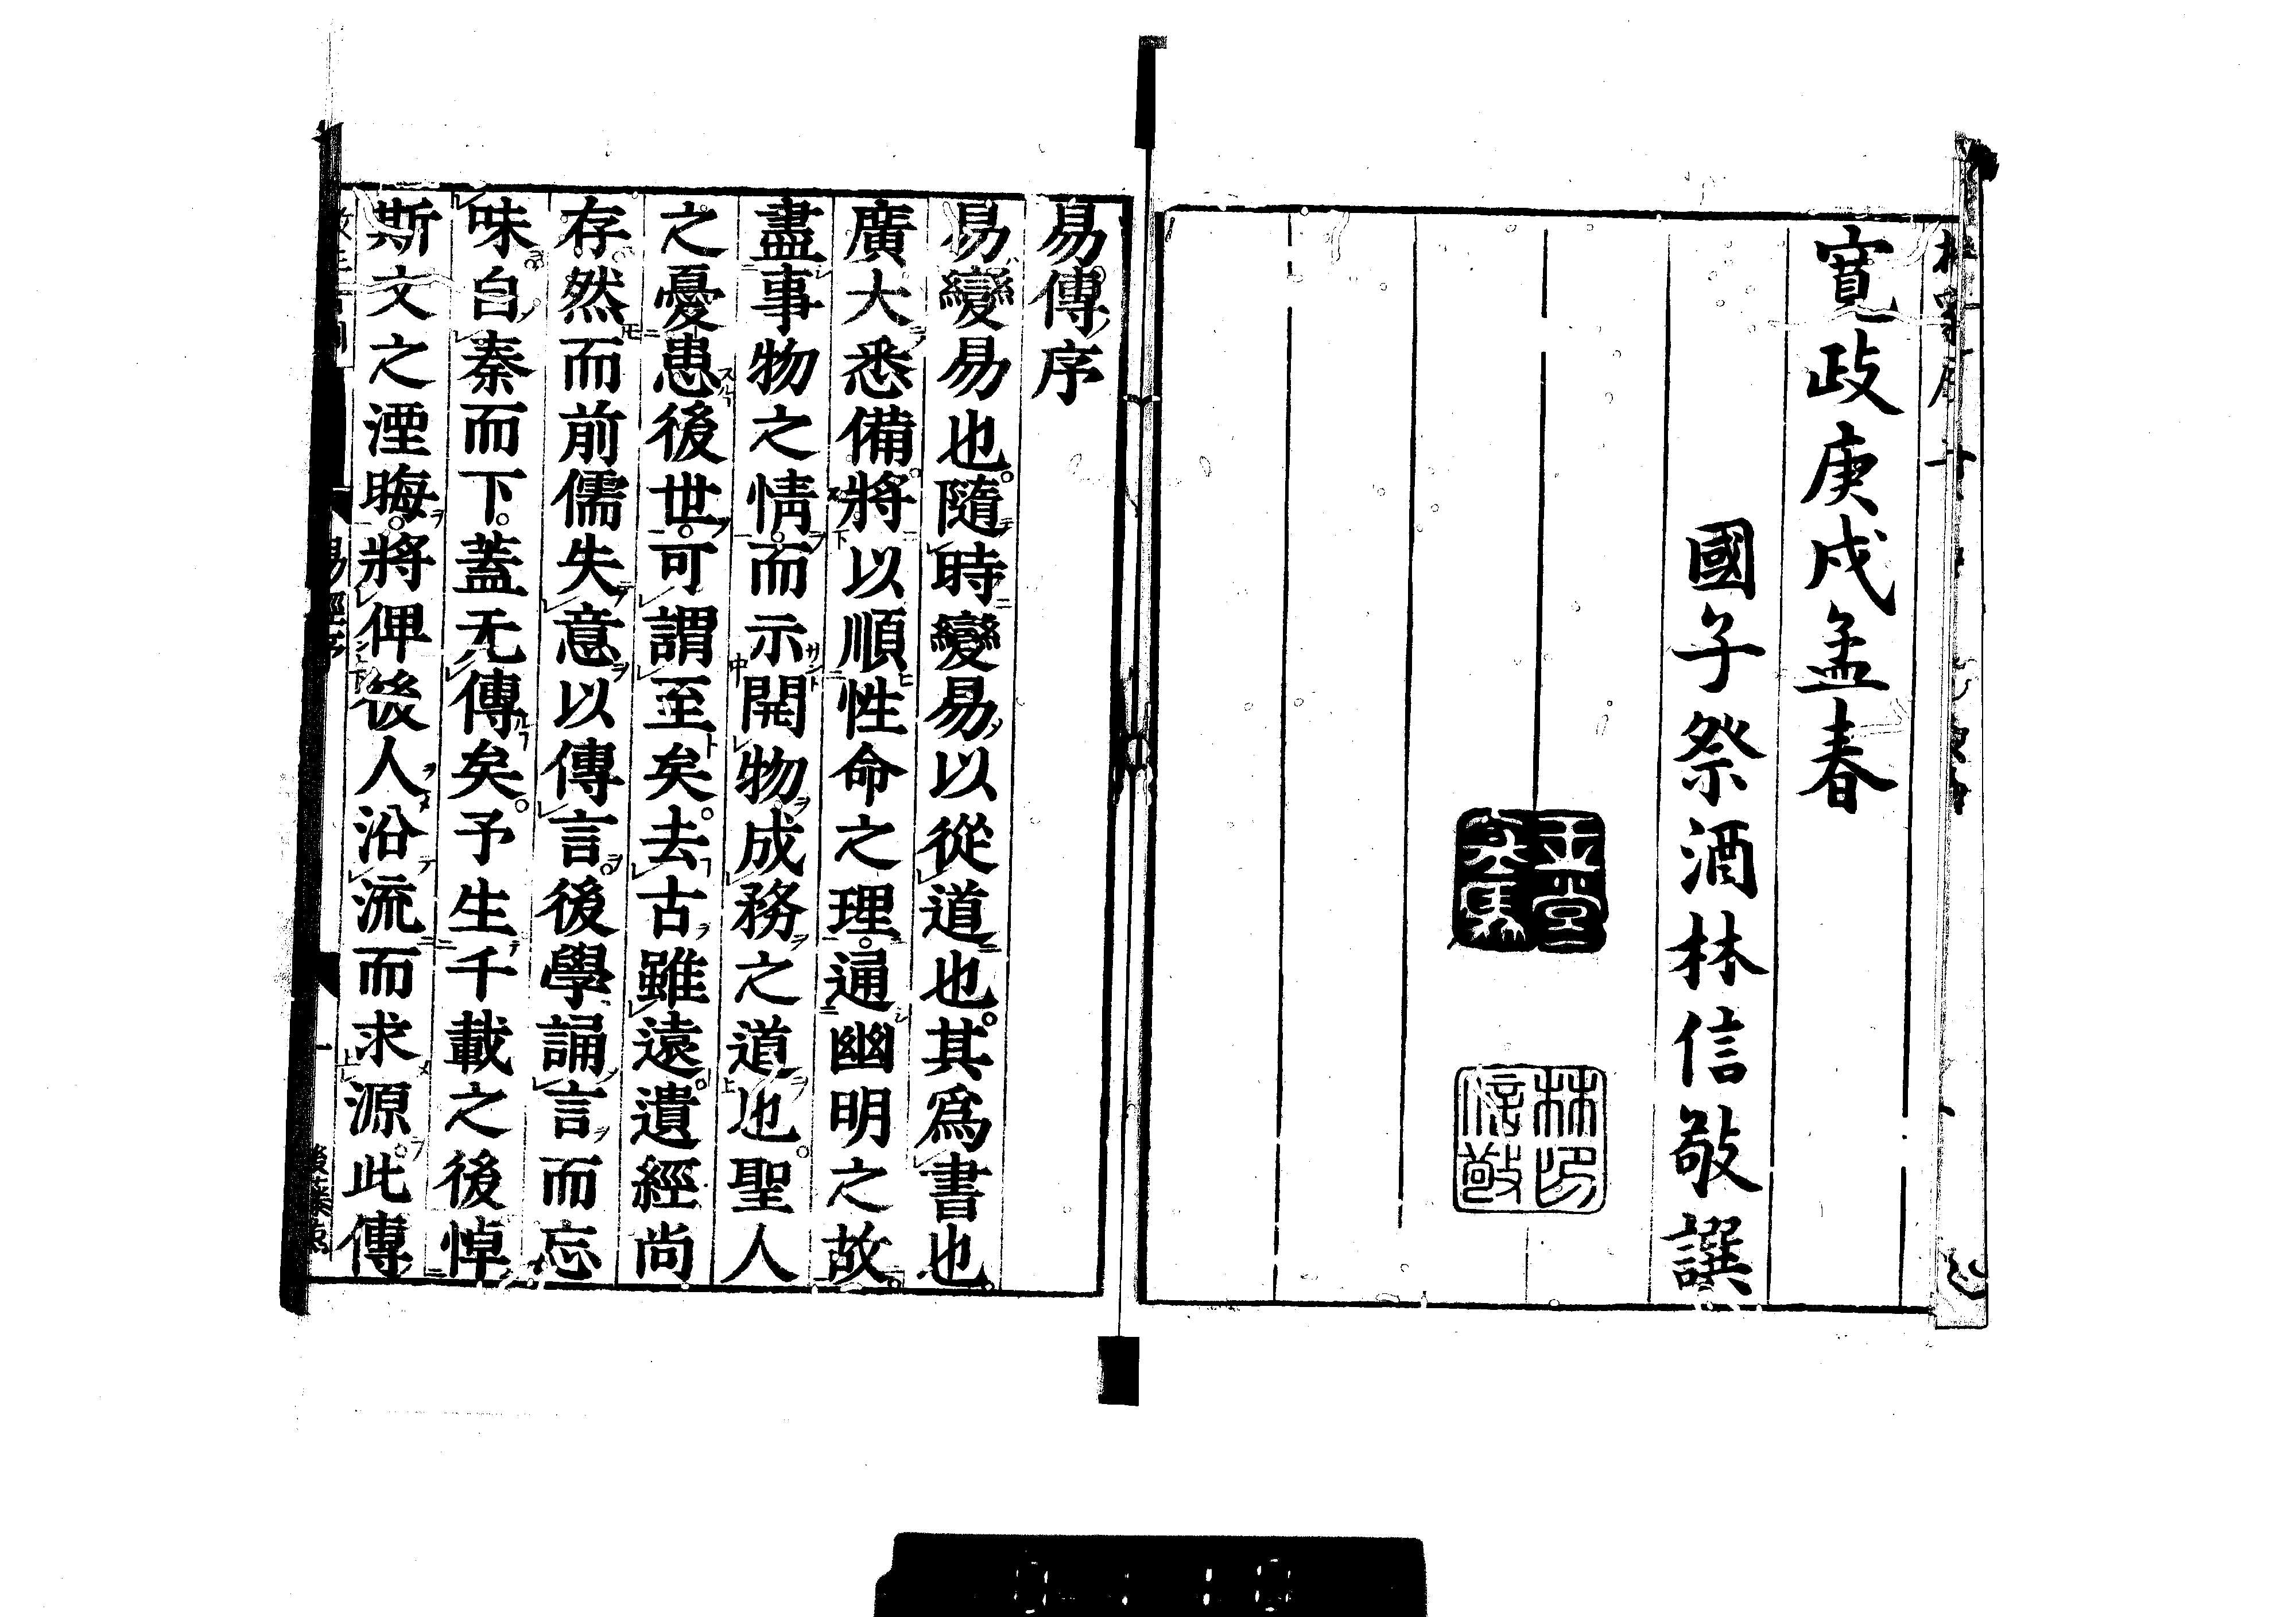 寛政庚戌孟春
國子祭酒林信敬譔
林信敬印
易傳序
易變易也隨時變易以從道也其爲書也
廣大悉備將以順性命之理通幽明之故
盡事物之情而示開物成務之道也聖人
之憂患後世可謂至矣去古雖遠遺經尚
存然而前儒失意以傳言後學誦言而忘
味自秦而下蓋无傳矣予生千載之後悼
斯文之湮晦將俾後人沿流而求源此傳
易經序
一
後藤點